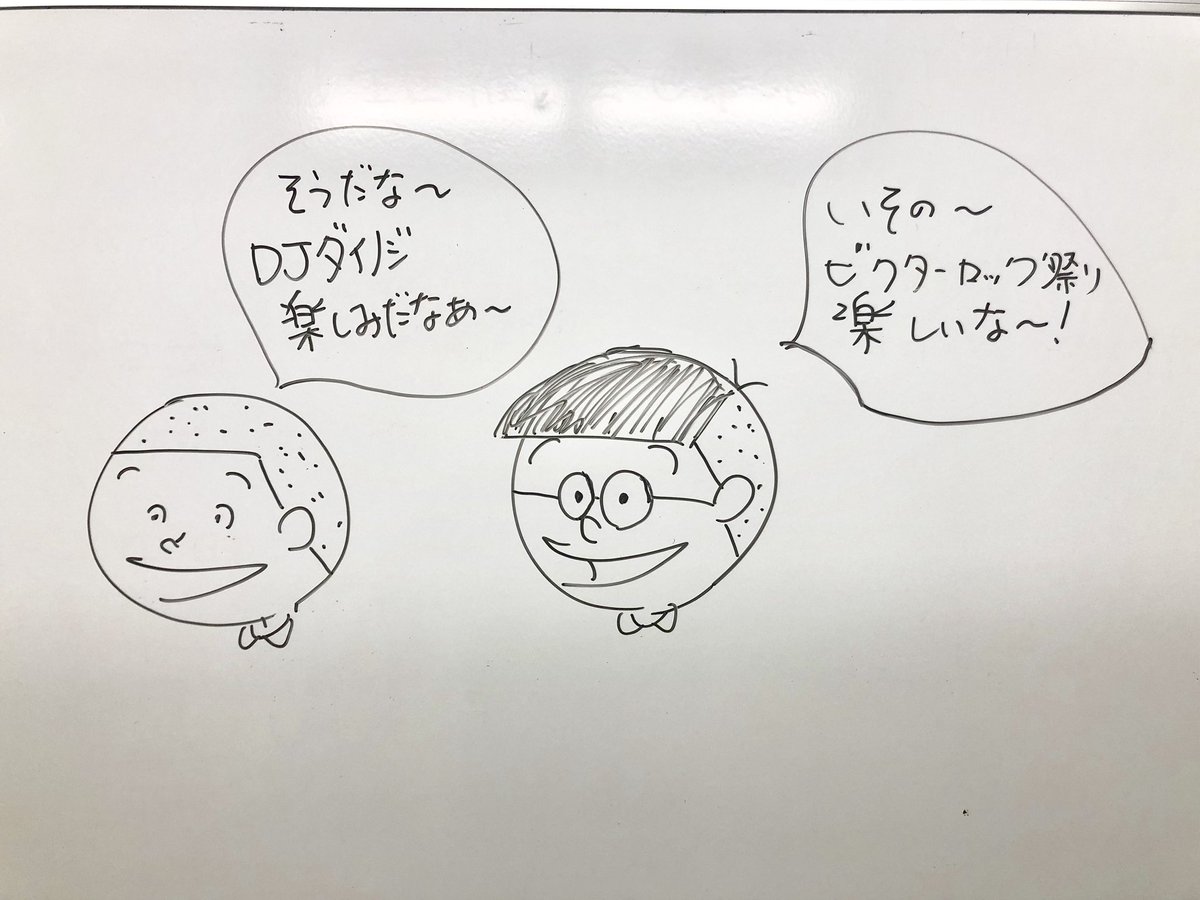 いその〜
ビクターロック祭り
楽しいな〜!
そうだな〜
DJダイノジ
楽しみだなあ〜